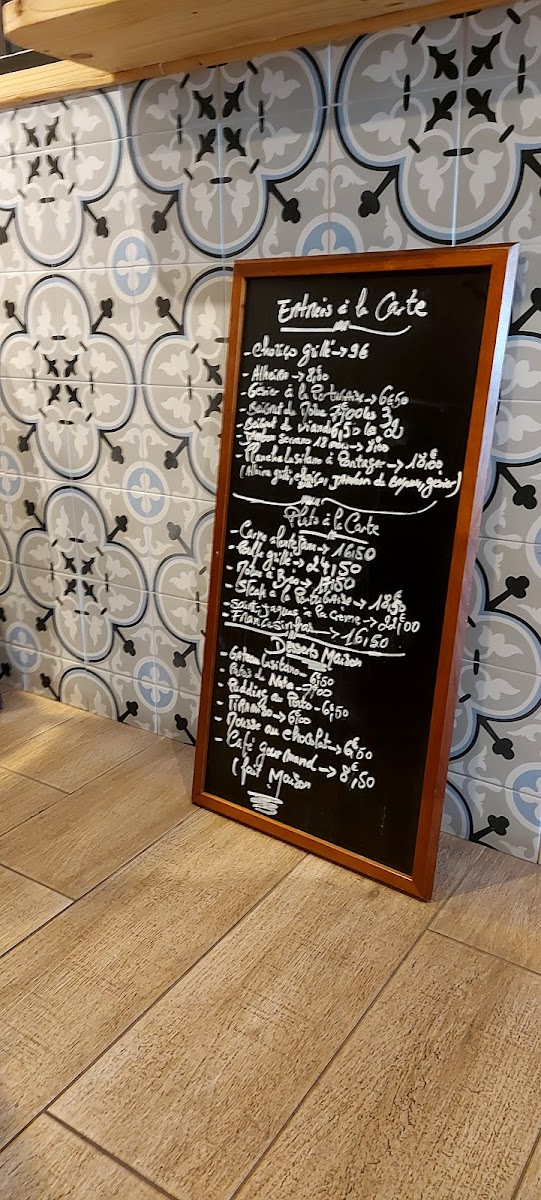 Entrées à la Carte
- Chorizo grillé → 9€
- Alheira → 8€50
- Gésier à la Portugaise → 6€50
- Beignet de Morue 7€00 les 3
- Beignet de viande 6,50 les 2
- Jambon serrano 18 mois → 8€00
- Planche Lusitano à Partager → 18€00
(Alheira, jambon de, gésier)
Plats à la Carte
- Carne alentejana → 16€50
- grillé → 24,50
- à → 17€50
- Steak à la Portugaise → 18€50
- Saint-Jacques à la Crème → 22€00
- Francesinha → 16,50
Desserts Maison
- Gateau Lusitano → 6€50
- Pateis de Nata →
- Pudding au Porto - 6€50
- Tiramisu → 6€00
- Mousse au chocolat → 6€50
- Café gourmand → 8€,50
(fait Maison